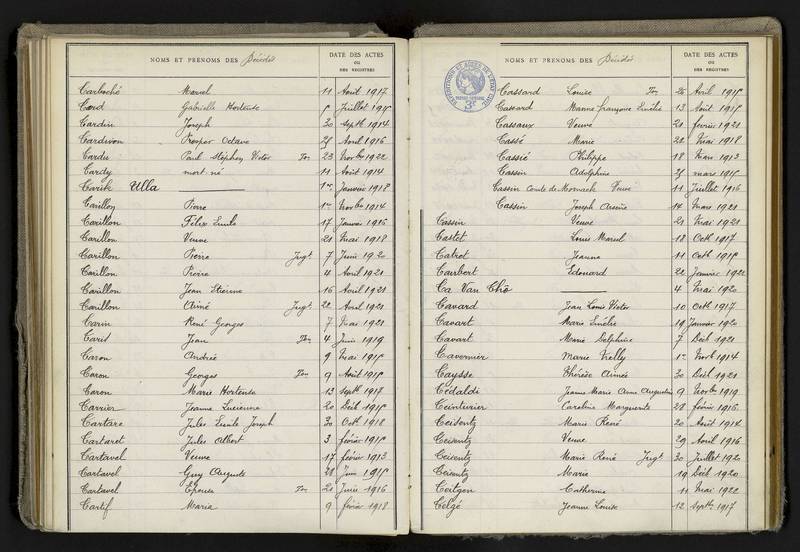 NOMS ET PRÉNOMS DES Décédés
DATE DES ACTES
OU
DES REGISTRES
Carboché Marcel 11 Août 1917
Card Gabrielle Hortense Juillet
Cardin Joseph 30 Septb 1914
Cardivon Prosper Octave Avril 1916
Cardu Paul Stéphen Victor Ton 23 Novbre 1922
Cardy mort né 11 Août 1914
Carik Ulla 1er Janvier 1918
Carillon Pierre 1er Novbre 1914
Carillon Félix Emile 17 Janvier 1916
Carillon Veuve 21 Mai 1918
Carillon Pierre Jugt 7 Juin 1920
Carillon Pierre 4 Avril 1921
Carillon Jean Etienne 16 Avril 1921
Carillon Aimé Jugt 22 Avril 1921
Carin René Georges 7 Mai 1921
Carid Jean Ton 4 Juin 1919
Caron Andrée 9 Mai
Caron Georges Ton 9 Août
Caron Marie Hortense 13 Septb 1917
Carrier Jeanne Lucienne 20 Déc
Cartare Jules Emile Joseph 30 Octb 1918
Cartaret Jules Albert 3 février
Cartavel Veuve 17 février 1913
Cartavel Guy Auguste 28 Juin
Cartavel Epouse Ton 21 Juin 1916
Cartif Maria 9 février 1918
NOMS ET PRÉNOMS DES Décédés
DATE DES ACTES
OU
DES REGISTRES
Cassard Louise Ton Avril
Cassard Marine françoise Emélie 13 Août
Cassaux Veuve 21 février 1921
Cassé Marie 22 Mai 1918
Cassié Philippe 18 Mars 1913
Cassin Adolphine mars
Cassin Comte de Veuve 11 Juillet 1916
Cassin Joseph Arsène 14 Mars 1921
Cassin Veuve 21 Mai 1921
Castet Louis Marcel 18 Octb 1917
Catrot Jeanne 11 Octb
Caubert Edouard 22 Janvier
Ca Van Chô 4 Mai 1920
Cavard Jean Louis Victor 10 Octb 1917
Cavart Marie Emélie 19 Janvier 1920
Cavart Marie Delphine 7 Déc 1921
Cavernier Marie Nelly 1er Novb 1914
Caysse Thérèse Aimée 30 Déc 1921
Cédaldi Jeanne Marie Anne Augustine 9 Novbre 1919
Ceinturier Caroline Marguerite 28 février 1916
Ceisentz Marie René 20 Août 1914
Ceisentz Veuve 29 Avril 1916
Ceisentz Marie René Jugt 30 Juillet 1920
Ceisentz Marie 19 Déc 1920
Ceitgen Catherine 11 Mai 1922
Celgé Jeanne Louise 12 Septb 1917